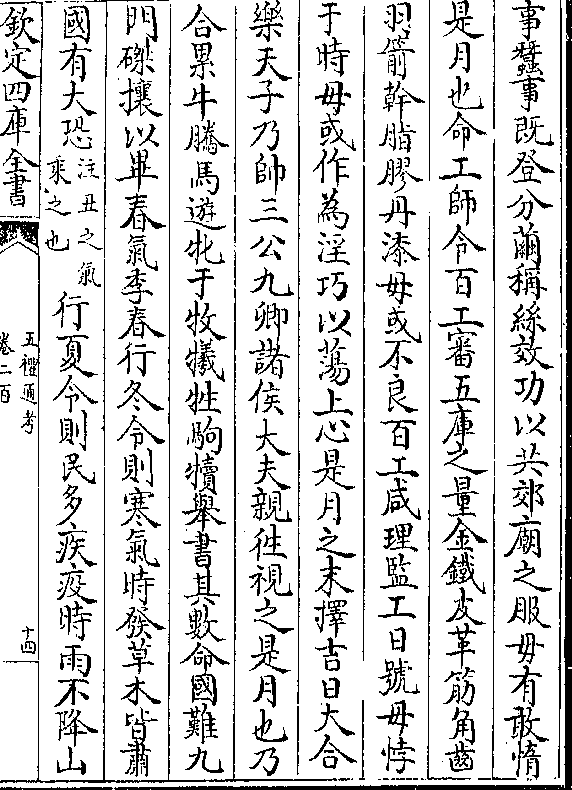 事蠶事既登分繭稱絲效功以共郊廟之服毋有敢惰
是月也命工師令百工審五庫之量金鐵皮革筋角齒
羽箭幹脂膠丹漆毋或不良百工咸理監工日號毋悖
于時毋或作為淫巧以蕩上心是月之末擇吉日大合
樂天子乃帥三公九卿諸侯大夫親徃視之是月也乃
合累牛騰馬遊牝于牧犧牲駒犢舉書其數命國難九
門磔攘以畢春氣季春行冬令則寒氣時發草木皆肅
國有大恐注丑之氣乘之也行夏令則民多疾疫時雨不降山
欽定四庫全書
五禮通考
卷二百
十四